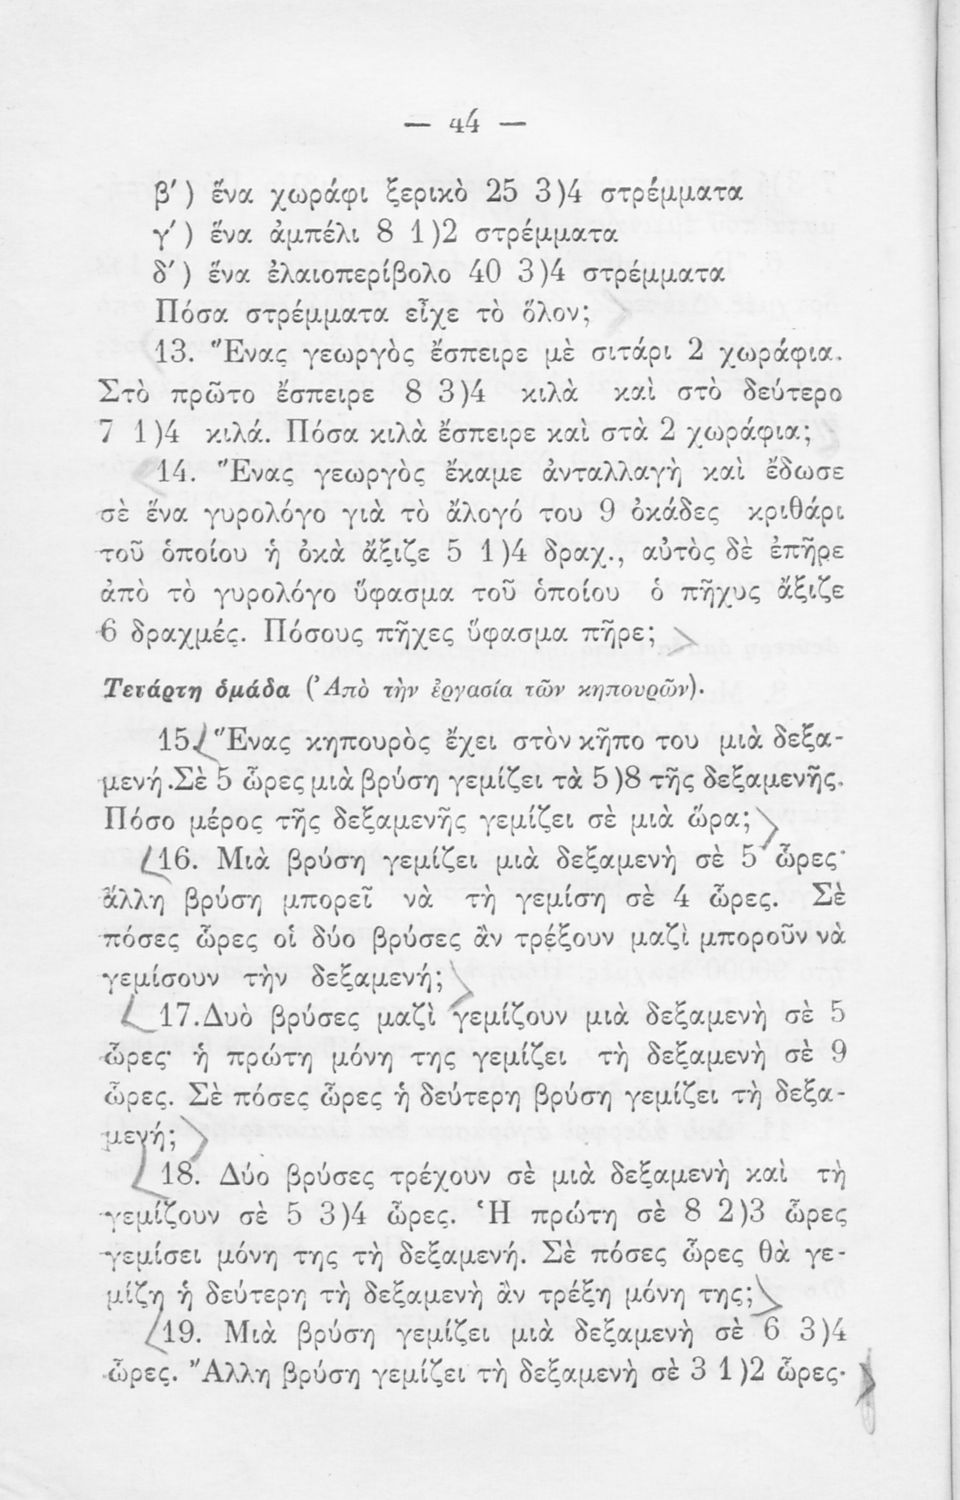 — 44 —
β') ἕνα χωράφι ξερικὸ 25 3)4 στρέμματα
γ') ἕνα ἀμπέλι 8 1)2 στρέμματα
δ') ἕνα ἐλαιοπερίβολο 40 3)4 στρέμματα
Πόσα στρέμματα εἶχε τὸ ὅλον;
13. Ἕνας γεωργὸς ἔσπειρε μὲ σιτάρι 2 χωράφια.
Στὸ πρῶτο ἔσπειρε 8 3)4 κιλὰ καὶ στὸ δεύτερο
7 1)4 κιλά. Πόσα κιλὰ ἔσπειρε καὶ στὰ 2 χωράφια;
14. Ἕνας γεωργὸς ἔκαμε ἀνταλλαγὴ καὶ ἔδωσε
σὲ ἕνα γυρολόγο γιὰ τὸ ἄλογό του 9 ὀκάδες κριθάρι
τοῦ ὁποίου ἡ ὀκὰ ἄξιζε 5 1)4 δραχ., αὐτὸς δὲ ἐπῆρε
ἀπὸ τὸ γυρολόγο ὕφασμα τοῦ ὁποίου ὁ πῆχυς ἄξιζε
6 δραχμές. Πόσους πῆχες ὕφασμα πῆρε;
Τετάρτη ὁμάδα (Ἀπὸ τὴν ἐργασία τῶν κηπουρῶν).
15. Ἕνας κηπουρὸς ἔχει στὸν κῆπο του μιὰ δεξα-
μενή. Σὲ 5 ὧρες μιὰ βρύση γεμίζει τὰ 5)8 τῆς δεξαμενῆς.
Πόσο μέρος τῆς δεξαμενῆς γεμίζει σὲ μιὰ ὥρα;
16. Μιὰ βρύση γεμίζει μιὰ δεξαμενὴ σὲ 5 ὧρες·
ἄλλη βρύση μπορεῖ νὰ τὴ γεμίση σὲ 4 ὧρες. Σὲ
πόσες ὧρες οἱ δύο βρύσες ἂν τρέξουν μαζὶ μποροῦν νὰ
γεμίσουν τὴν δεξαμενή;
17. Δυὸ βρύσες μαζὶ γεμίζουν μιὰ δεξαμενὴ σὲ 5
ὧρες· ἡ πρώτη μόνη της γεμίζει τὴ δεξαμενὴ σὲ 9
ὧρες. Σὲ πόσες ὧρες ἡ δεύτερη βρύση γεμίζει τὴ δεξα-
μενή;
18. Δύο βρύσες τρέχουν σὲ μιὰ δεξαμενὴ καὶ τὴ
γεμίζουν σὲ 5 3)4 ὧρες. Ἡ πρώτη σὲ 8 2)3 ὧρες
γεμίσει μόνη της τὴ δεξαμενή. Σὲ πόσες ὧρες θὰ γε-
μίζη ἡ δεύτερη τὴ δεξαμενὴ ἂν τρέξη μόνη της;
19. Μιὰ βρύση γεμίζει μιὰ δεξαμενὴ σὲ 6 3)4
ὧρες. Ἄλλη βρύση γεμίζει τὴ δεξαμενὴ σὲ 3 1)2 ὧρες·